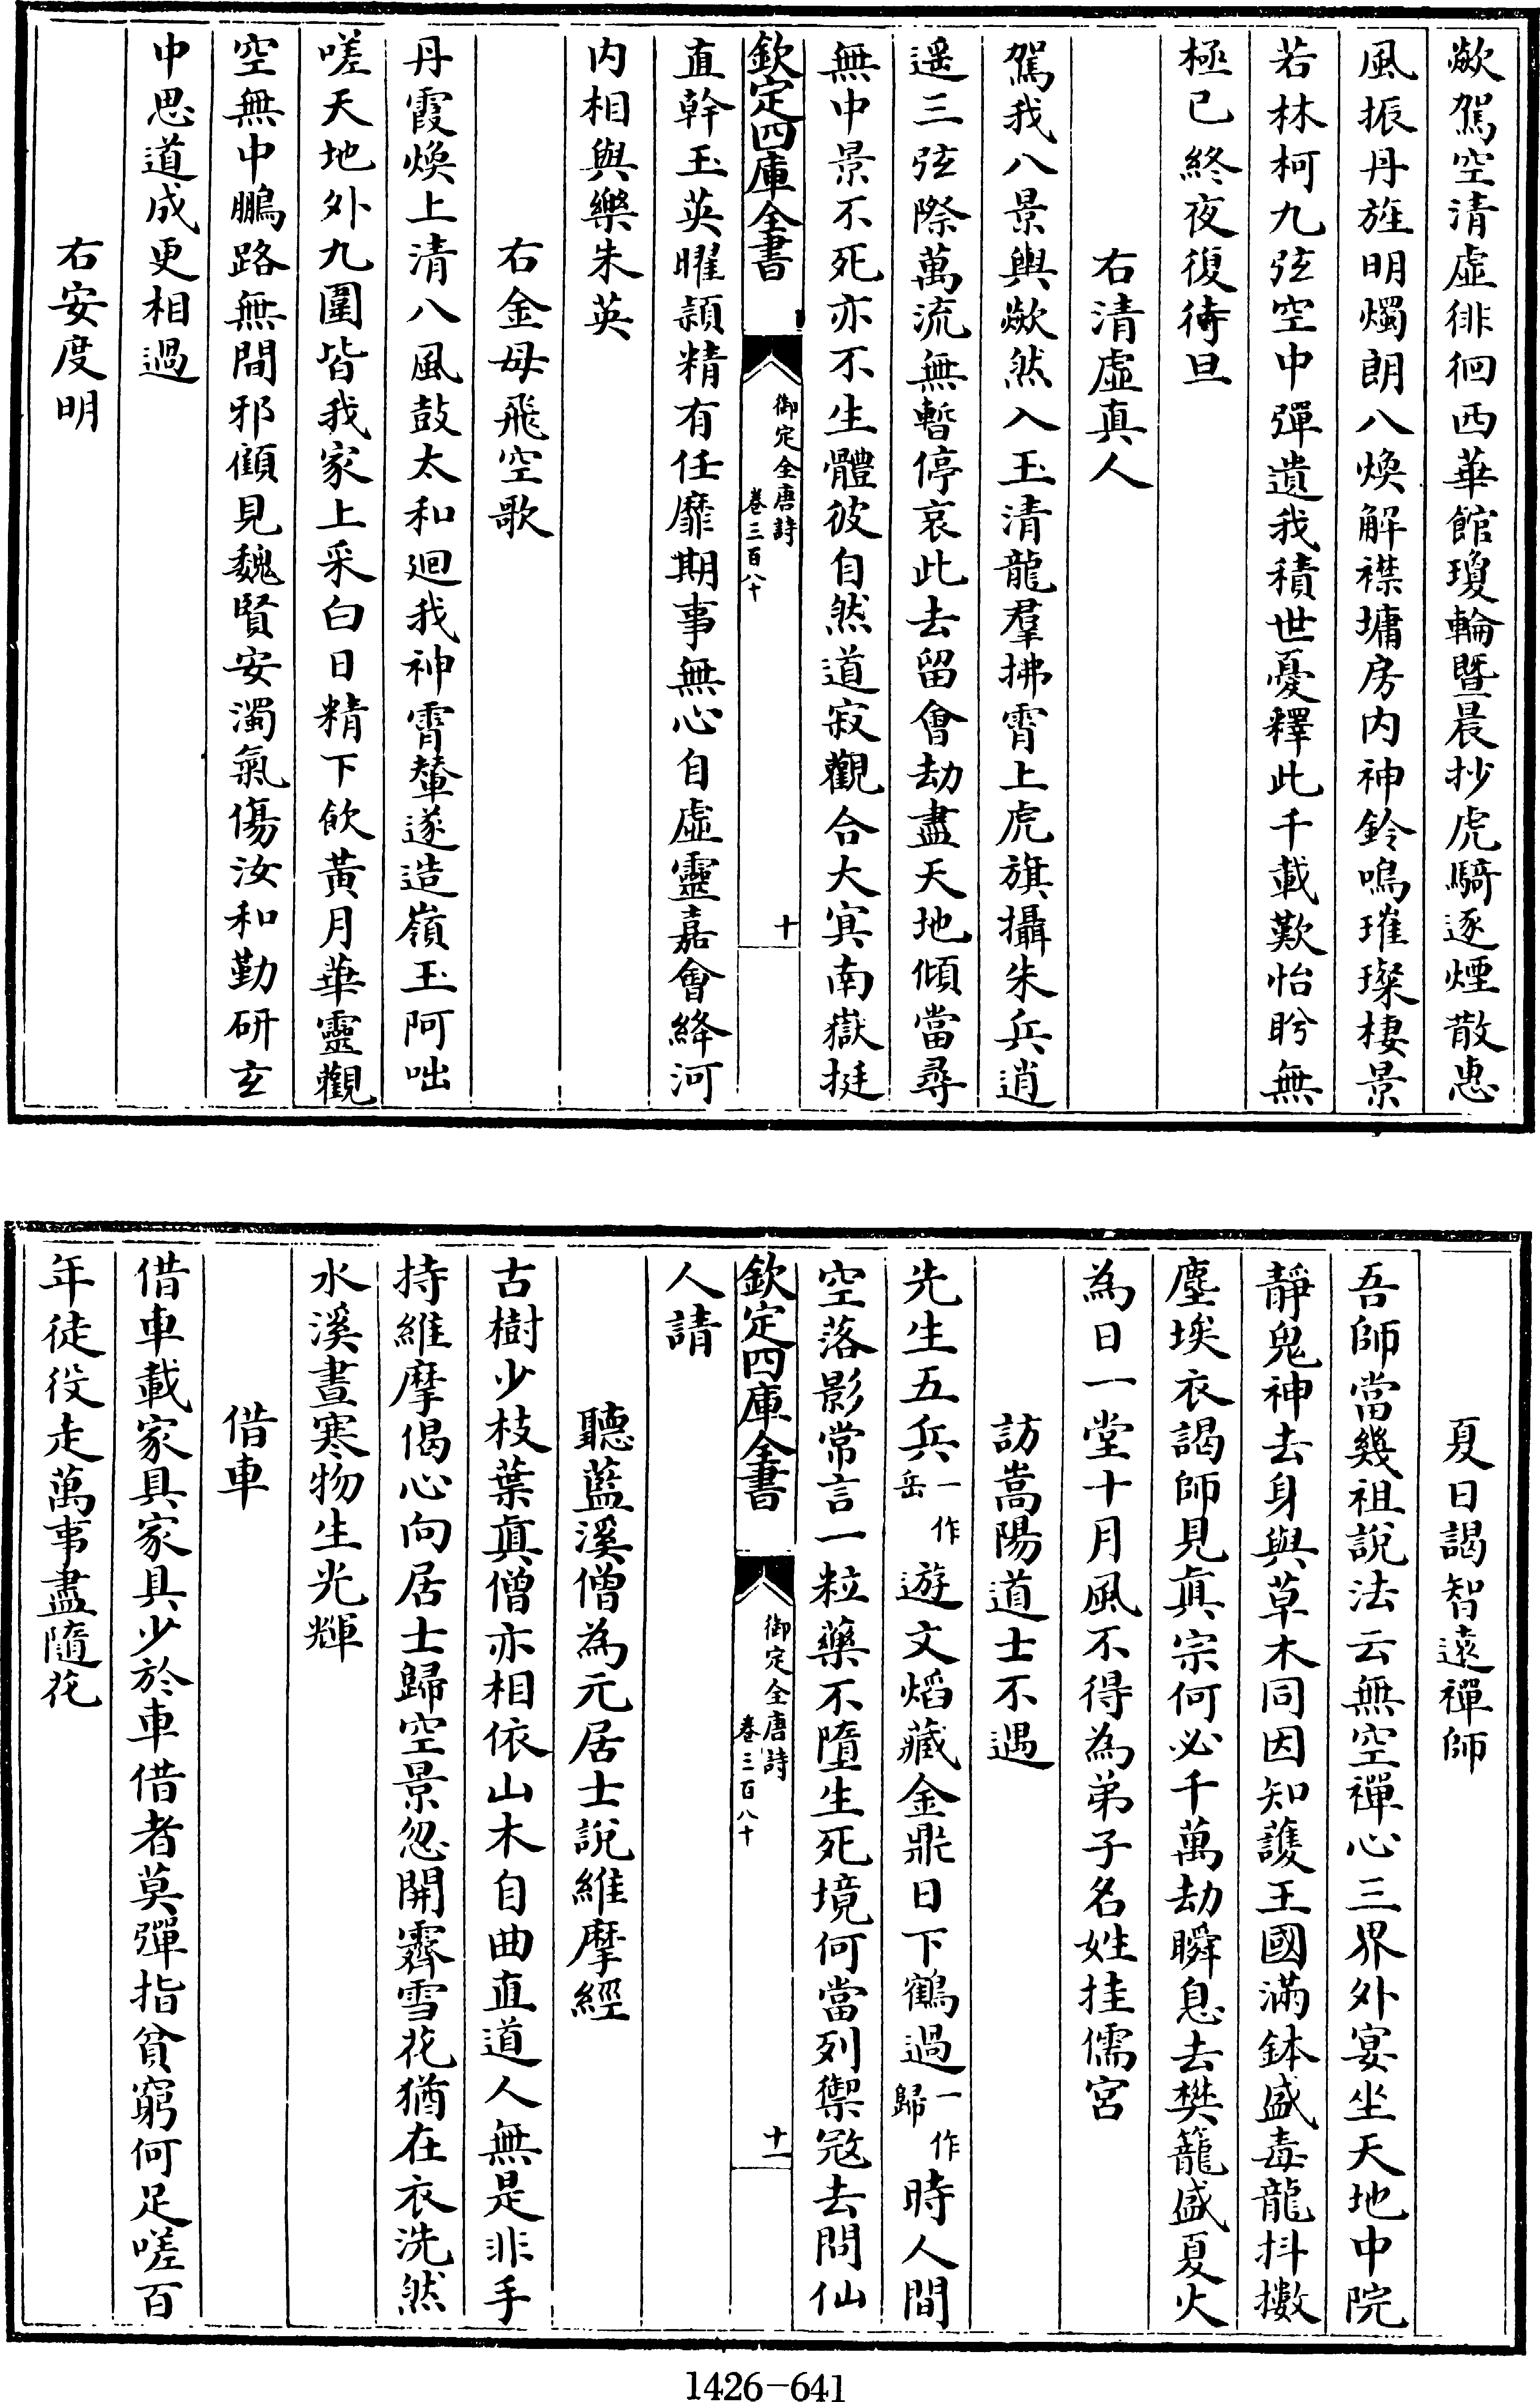 歘駕空清虛徘徊西華館瓊輪暨晨抄虎騎逐煙散惠
風振丹旌明燭朗八煥解襟墉房内神鈴鳴璀璨棲景
若林柯九弦空中彈遺我積世憂釋此千載歎怡盻無
極已終夜復待旦
右清虛真人
駕我八景輿歘然入玉清龍羣拂霄上虎旗攝朱兵逍
遥三弦際萬流無暫停哀此去留會劫盡天地傾當尋
無中景不死亦不生體彼自然道寂觀合大冥南嶽挺
欽定四庫全書
御定全唐詩
卷三百八十
十
直幹玉英曜頴精有任靡期事無心自虛靈嘉會絳河
内相與樂朱英
右金母飛空歌
丹霞煥上清八風鼓太和迴我神霄輦遂造嶺玉阿咄
嗟天地外九圍皆我家上采白日精下飲黃月華靈觀
空無中鵬路無間邪顧見魏賢安濁氣傷汝和勤研玄
中思道成更相過
右安度明
夏日謁智遠禪師
吾師當幾祖說法云無空禪心三界外宴坐天地中院
靜鬼神去身與草木同因知護王國滿鉢盛毒龍抖擻
塵埃衣謁師見真宗何必千萬劫瞬息去樊籠盛夏火
為日一堂十月風不得為弟子名姓挂儒宮
訪嵩陽道士不遇
先生五兵一作岳遊文熖藏金鼎日下鶴過一作歸時人間
空落影常言一粒藥不墮生死境何當列禦宼去問仙
欽定四庫全書
御定全唐詩
卷三百八十
十一
人請
聽藍溪僧為元居士說維摩經
古樹少枝葉真僧亦相依山木自曲直道人無是非手
持維摩偈心向居士歸空景忽開霽雪花猶在衣洗然
水溪晝寒物生光輝
借車
借車載家具家具少於車借者莫彈指貧窮何足嗟百
年徒役走萬事盡隨花
1426-641